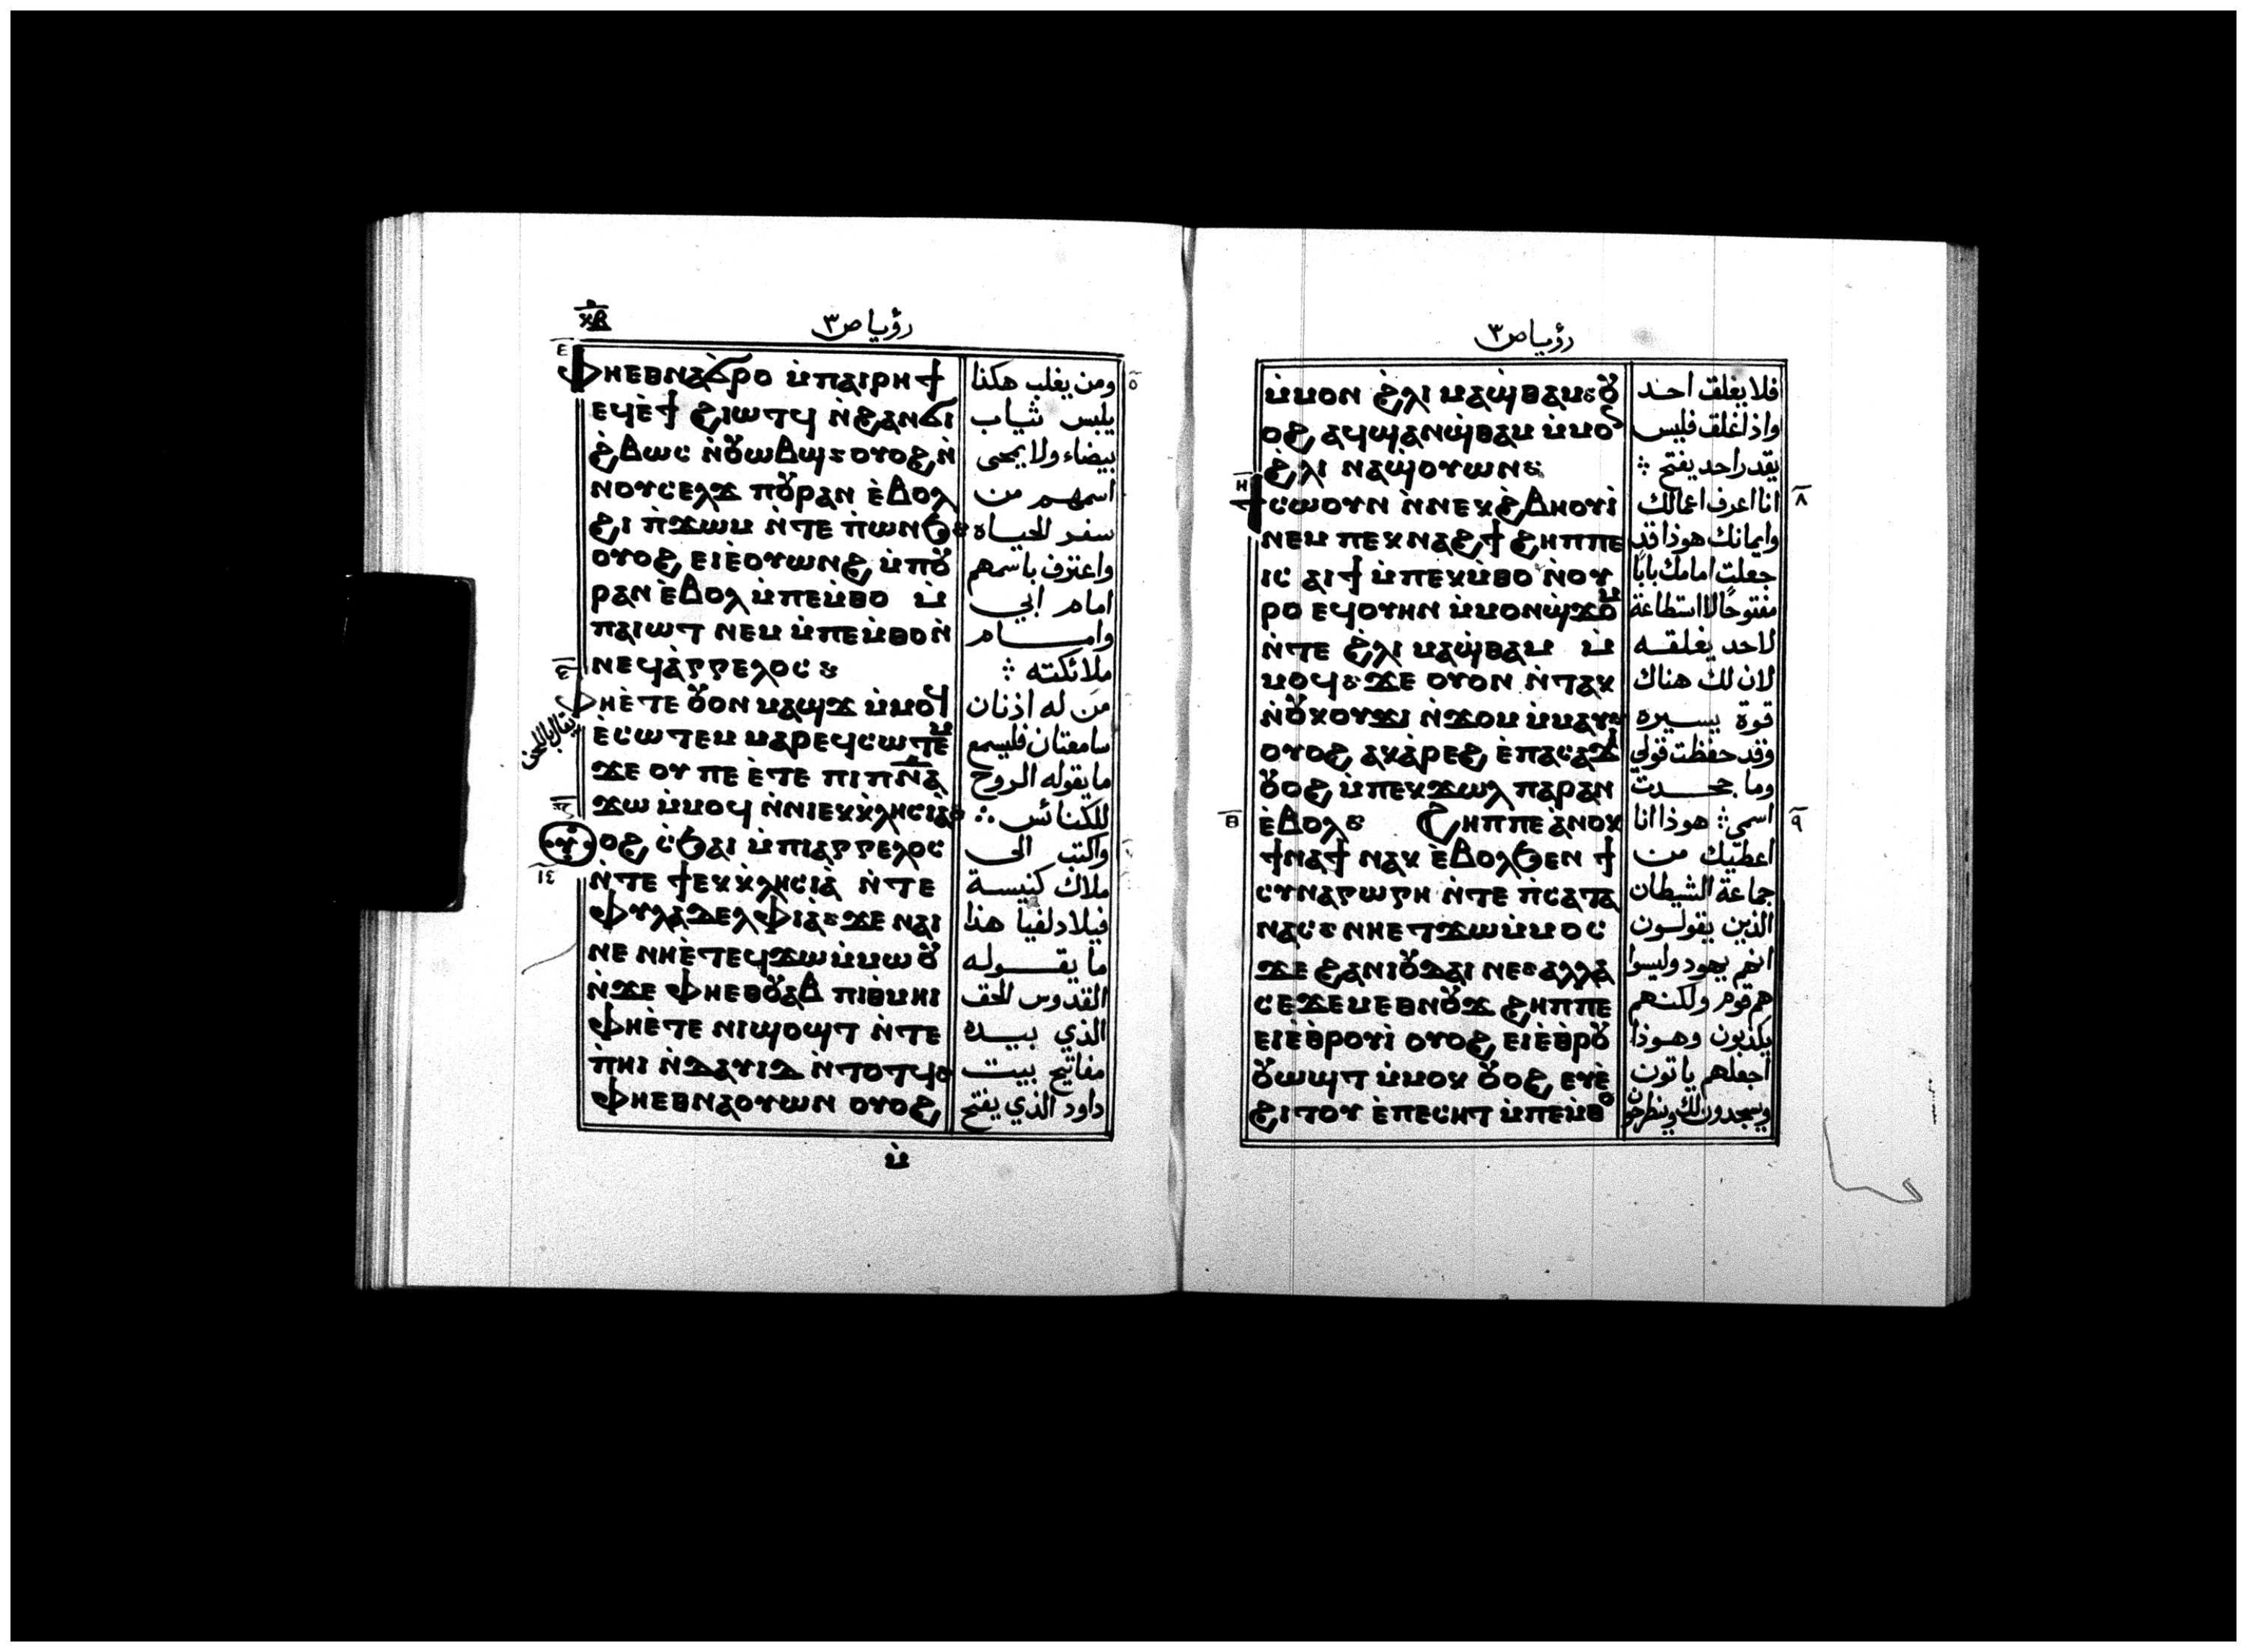 رؤيا ص ٣
ⲫⲏⲉⲑⲛⲁϭⲣⲟ ⲙ̀ⲡⲁⲓⲣⲏϯ
ⲉϥⲉ̀ϯ ϩⲓⲱⲧϥ ⲛ̀ϩⲁⲛϭⲓ
ϩ̀ⲃⲱⲥ ⲛ̀ⲟⲩⲱⲃϣ: ⲟⲩⲟϩ ⲛ̀
ⲛⲟⲩⲥⲉⲗϫ ⲡⲟⲩⲣⲁⲛ ⲉ̀ⲃⲟⲗ
ϩⲓ ⲡ̀ϫⲱⲙ ⲛ̀ⲧⲉ ⲡ̀ⲱⲛϧ:
ⲟⲩⲟϩ ⲉⲓⲉ̀ⲟⲩⲱⲛϩ ⲙ̀ⲡⲟⲩ
ⲣⲁⲛ ⲉ̀ⲃⲟⲗ ⲙ̀ⲡⲉⲙ̀ⲑⲟ ⲙ̀
ⲡⲁⲓⲱⲧ ⲛⲉⲙ ⲙ̀ⲡⲉⲙ̀ⲑⲟ ⲛ̀
ⲛⲉϥⲁ̀ⲅⲅⲉⲗⲟⲥ:
ⲫⲏⲉ̀ⲧⲉ ⲟⲩⲟⲛ ⲙⲁϣϫ ⲙ̀ⲙⲟϥ
ⲉ̀ⲥⲱⲧⲉⲙ ⲙⲁⲣⲉϥⲥⲱⲧⲉⲙ
ϫⲉ ⲟⲩ ⲡⲉ ⲉ̀ⲧⲉ ⲡⲓⲡⲛⲁ
ϫⲱ ⲙ̀ⲙⲟϥ ⲛ̀ⲛⲓⲉⲕⲕⲗⲏⲥⲓⲁ̀:
ⲟⲩⲟϩ ⲥ̀ϧⲁⲓ ⲙ̀ⲡⲓⲁⲅⲅⲉⲗⲟⲥ
ⲛ̀ⲧⲉ ϯⲉⲕⲕ̀ⲗⲏⲥⲓⲁ̀ ⲛ̀ⲧⲉ
ⲫⲩⲗⲁⲇⲉⲗⲫⲓⲁ̀: ϫⲉ ⲛⲁⲓ
ⲛⲉ ⲛⲏⲉ̀ⲧⲉϥϫⲱ ⲙ̀ⲙⲱⲟⲩ
ⲛ̀ϫⲉ ⲫⲏⲉⲑⲟⲩⲁⲃ ⲡⲓⲑⲙⲏⲓ
ⲫⲏⲉ̀ⲧⲉ ⲛⲓϣⲟϣⲧ ⲛ̀ⲧⲉ
ⲡ̀ⲏⲓ ⲛ̀ⲇⲁⲩⲓⲇ ⲛ̀ⲧⲟⲧϥ:
ⲫⲏⲉⲑⲛⲁⲟⲩⲱⲛ ⲟⲩⲟϩ
ⲙ̀
ومن يغلب هكذا
يلبس ثياب
بيضاء ولا يمحى
اسمهم من
سفر الحياه
واعترف باسمهم
امام ابي
وامام
ملائكته
من له اذنان
سامعتان فليسمع
ما يقوله الروح
للكنائس
واكتب الى
ملاك كنيسة
فيلادلفيا هذا
ما يقوله
القدوس الحق
الذي بيده
مفاتيح بيت
داود الذي يفتح
رؤيا ص ٣
ⲙ̀ⲙⲟⲛ ϩ̀ⲗⲓ ⲛⲁϣ̀ⲑⲁⲙ: ⲟⲩ
ⲟϩ ⲁϥϣⲁⲛϣ̀ⲑⲁⲙ ⲙ̀ⲙⲟⲛ
ϩ̀ⲗⲓ ⲛⲁϣ̀ⲟⲩⲱⲛ:
ϯⲥⲱⲟⲩⲛ ⲛ̀ⲛⲉⲕϩ̀ⲃⲏⲟⲩⲓ̀
ⲛⲉⲙ ⲡⲉⲕⲛⲁϩϯ ϩⲏⲡⲡⲉ
ⲓⲥ ⲁⲓϯ ⲙ̀ⲡⲉⲕⲙ̀ⲑⲟ ⲛ̀ⲟⲩ
ⲣⲟ ⲉϥⲟⲩⲏⲛ ⲙ̀ⲙⲟⲛϣ̀ϫⲟⲙ
ⲛ̀ⲧⲉ ϩ̀ⲗⲓ ⲙⲁϣ̀ⲑⲁⲙ ⲙ̀
ⲙⲟϥ: ϫⲉ ⲟⲩⲟⲛ ⲛ̀ⲧⲁⲕ
ⲛ̀ⲟⲩⲕⲟⲩϫⲓ ⲛ̀ϫⲟⲙ ⲙ̀ⲙⲁⲩ:
ⲟⲩⲟϩ ⲁⲕⲁ̀ⲣⲉϩ ⲉ̀ⲡⲁⲥⲁϫⲓ
ⲟⲩⲟϩ ⲙ̀ⲡⲉⲕϫⲱⲗ ⲡⲁⲣⲁⲛ
ⲉ̀ⲃⲟⲗ: ϩⲏⲡⲡⲉ ⲁ̀ⲛⲟⲕ
ϯⲛⲁϯ ⲛⲁⲕ ⲉ̀ⲃⲟⲗϧⲉⲛ ϯ
ⲥⲩⲛⲁⲅⲱⲅⲏ ⲛ̀ⲧⲉ ⲡ̀ⲥⲁⲧⲁ
ⲛⲁⲥ: ⲛⲏⲉⲧϫⲱ ⲙ̀ⲙⲟⲥ
ϫⲉ ϩⲁⲛⲓⲟⲩⲇⲁⲓ ⲛⲉ: ⲁⲗⲗⲁ
ⲥⲉϫⲉⲙⲉⲑⲛⲟⲩϫ ϩⲏⲡⲡⲉ
ⲉⲓⲉ̀ⲑⲣⲟⲩⲓ̀ ⲟⲩⲟϩ ⲉⲓⲉ̀ⲑⲣⲟⲩ
ⲟⲩⲱϣⲧ ⲙ̀ⲙⲟⲕ ⲟⲩⲟϩ ⲉⲩⲉ̀
ϩⲓⲧⲟⲩ ⲉ̀ⲡⲉⲥⲏⲧ ⲙ̀ⲡⲉⲙ̀ⲑⲟ
فلا يغلق احد
واذا اغلق فليس
يقدر احد يفتح
انا اعرف اعمالك
وايمانك هوذا قد
جعلت امامك بابًا
مفتوحًا لا استطاعة
لاحد يغلقه
لان لك هناك
قوة يسيره
وقد حفظت قولي
وما جحدت
اسمي هوذا انا
اعطيك من
جماعة الشيطان
الذين يقولون
انهم يهود وليسوا
هم قوم ولكنهم
يكذبون وهوذا
اجعلهم ياتون
ويسجدون لك